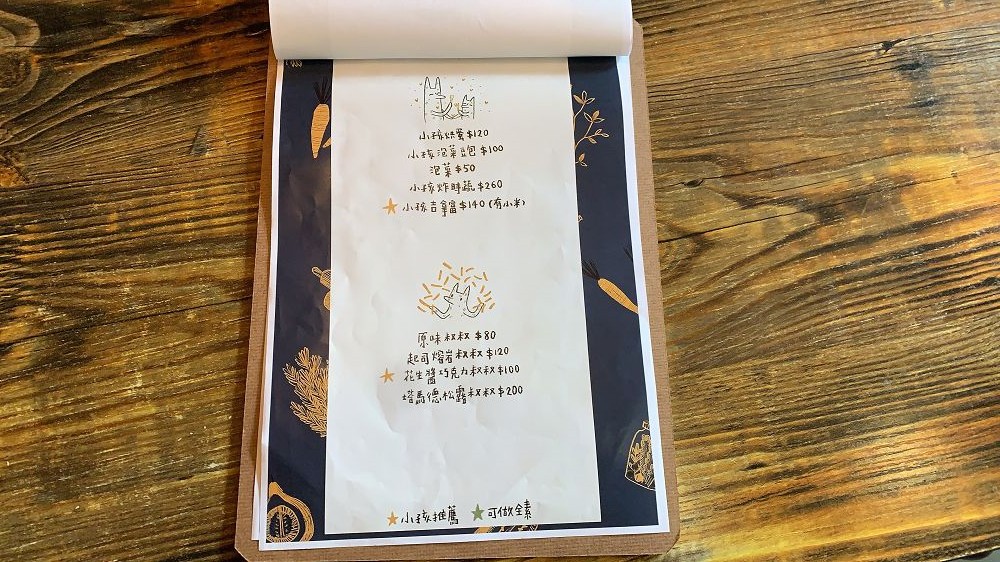 小孩烘蛋 $120
小孩泡菜豆包 $100
泡菜 $50
小孩炸時蔬 $260
小孩吉拿富 $140 (有小米)
原味叔叔 $80
起司熔岩叔叔 $120
花生醬巧克力叔叔 $100
塔馬德松露叔叔 $200
小孩推薦 可做全素